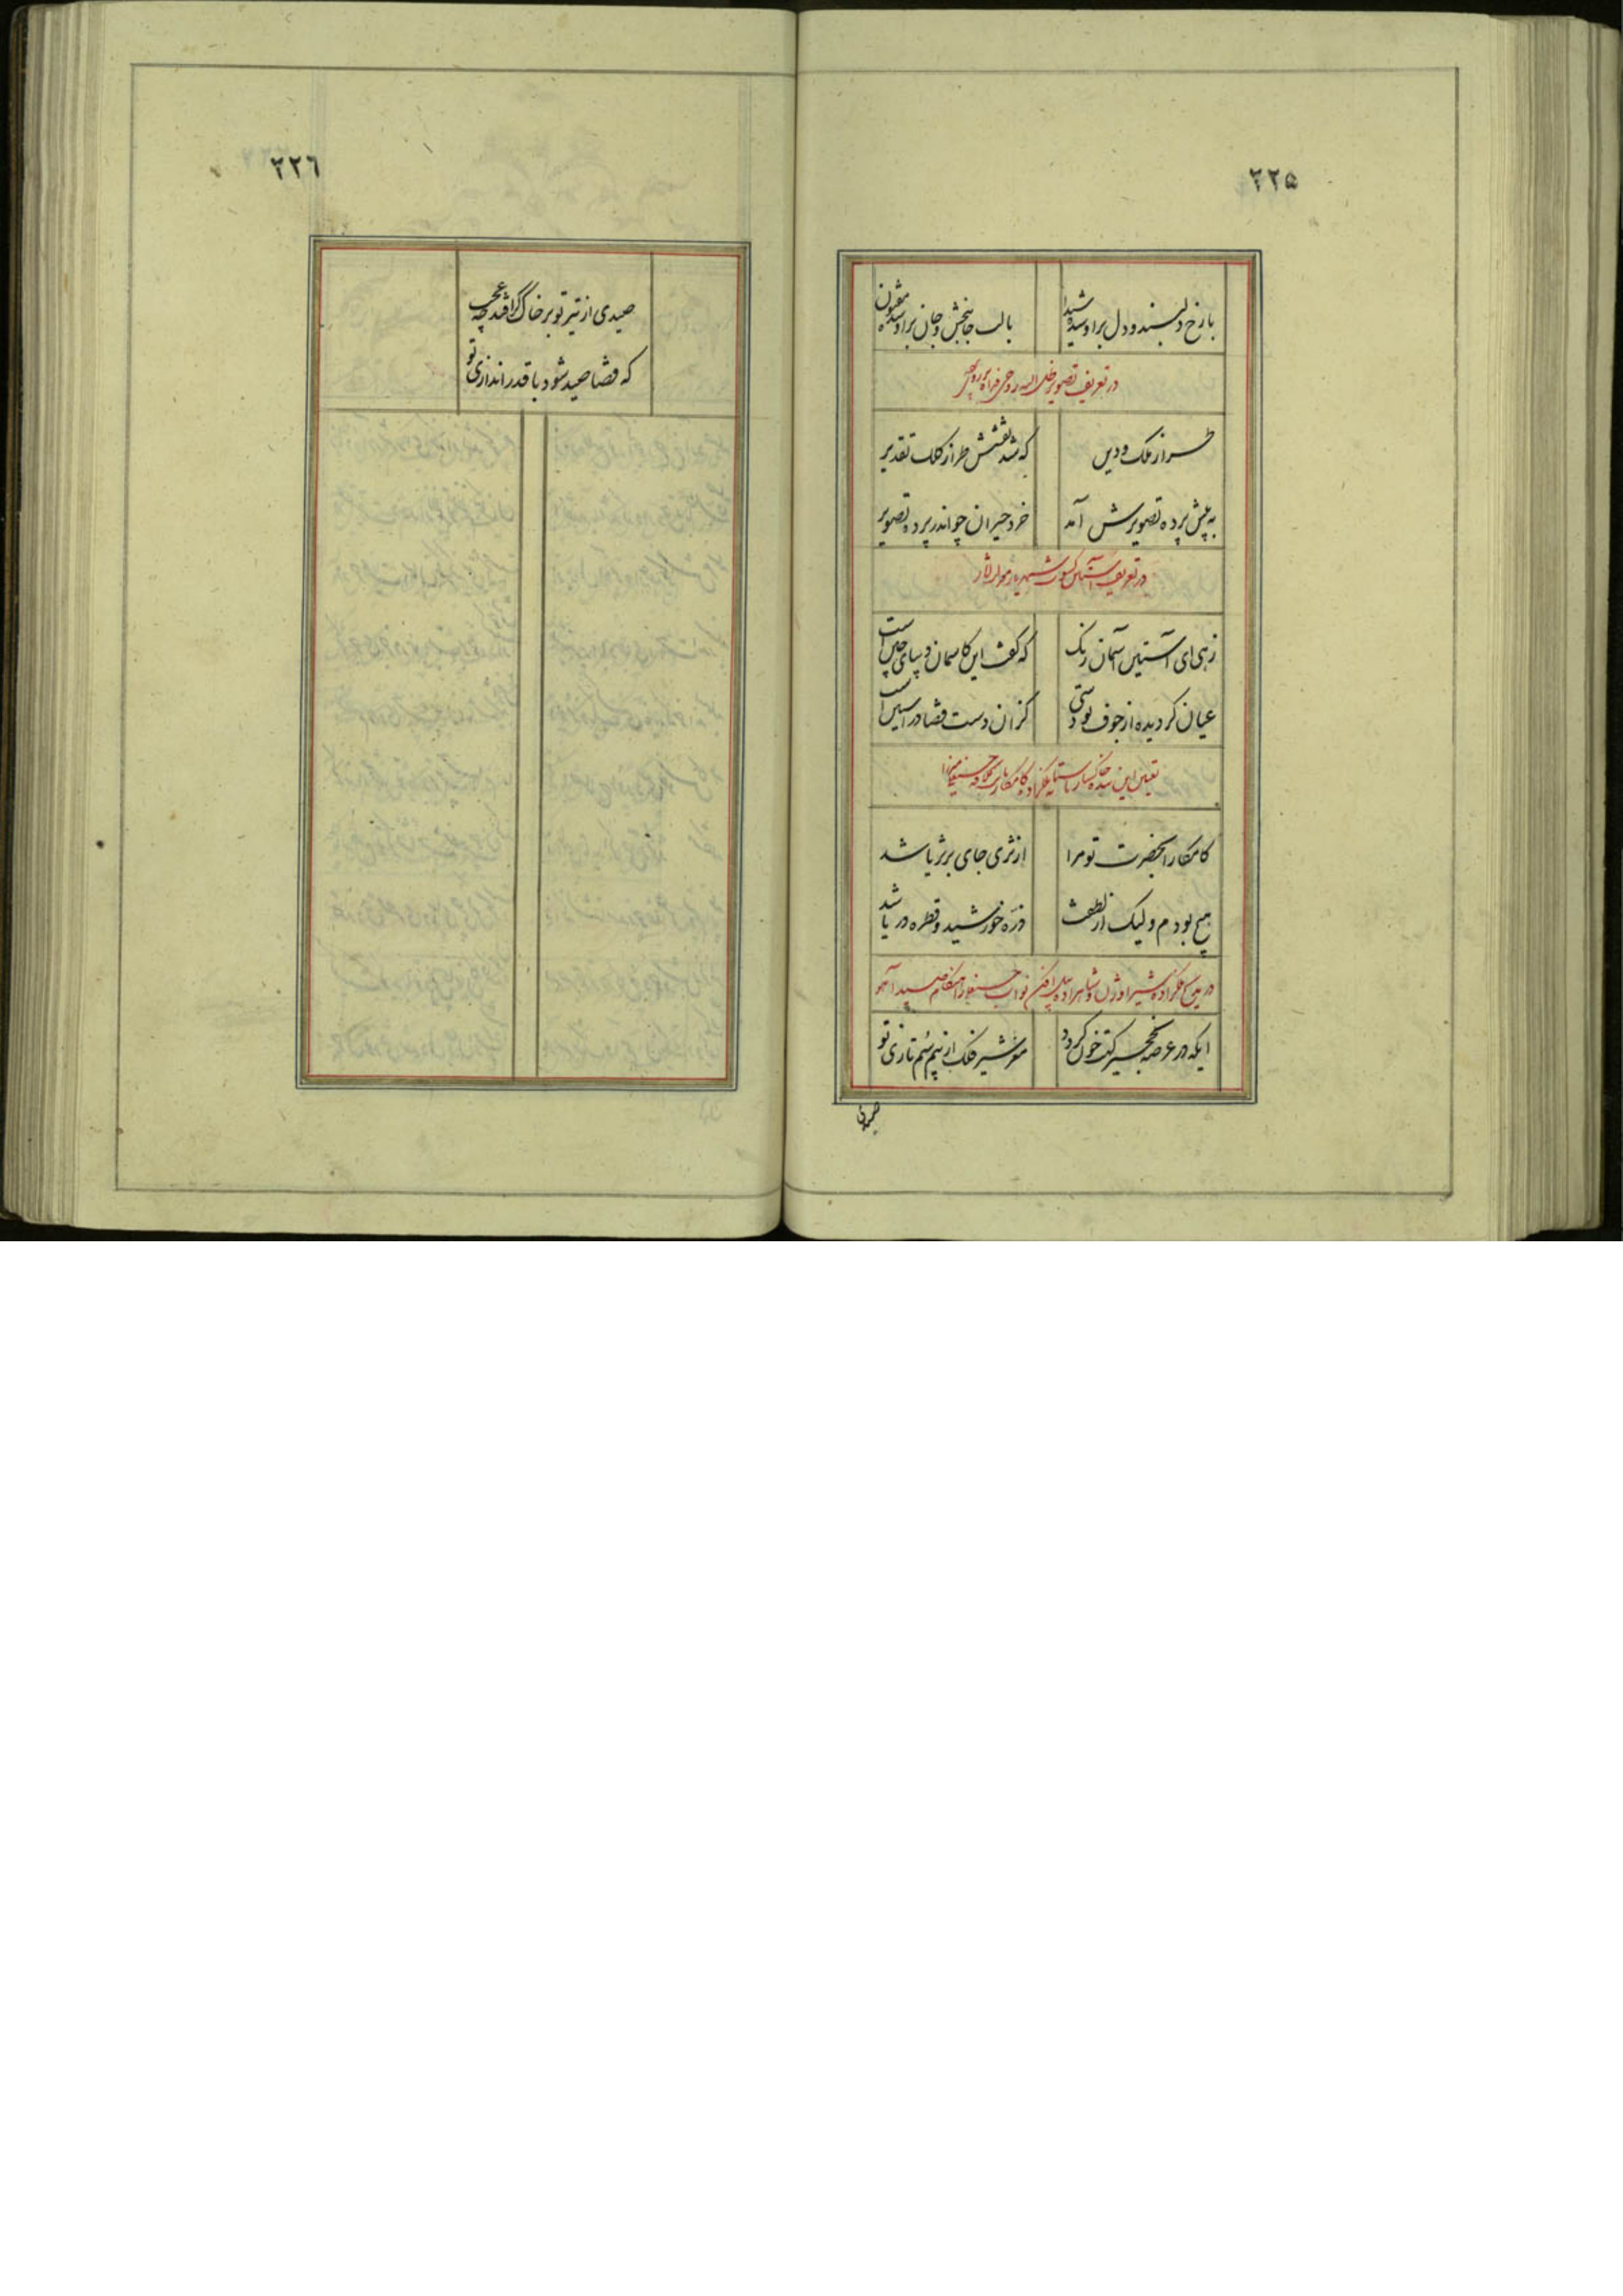 ۲۲۵
با رخ دلبند و دل بر او شده شیدا
با لب جانبخش و جان بر او شده مفتون
در تعریف تصویر ظل الله روحی فداه
طراز ملک و دین
که شد نقشش طراز کلک تقدیر
به پیش پرده تصویرش آمد
خرد حیران چو اندر پرده تصویر
در تعریف آستین کسوت شهریار
زهی ای آستین آسمان رنگ
که گفت این کاسمان دیبای چین است
عیان گردیده از جوف تو دستی
کزان دست قضا در آستین است
این بنده خاکسار
کامکارا بحضرت تو مرا
از ثری جای بر ثریا شد
هیچ بودم ولیک از لطفت
ذره خورشید و قطره دریا شد
در مدح ملکزاده شیر اوژن و شاهزاده پیل افکن نواب هنگام صید آهو
ایکه در عرصه نخجیر کهت خون گردد
شیر فلک از بیم سم تازی تو
صیدی
۲۲۶
صیدی از تیر تو بر خاک گر افتد چه عجب
که قضا صید شود با قدر اندازی تو